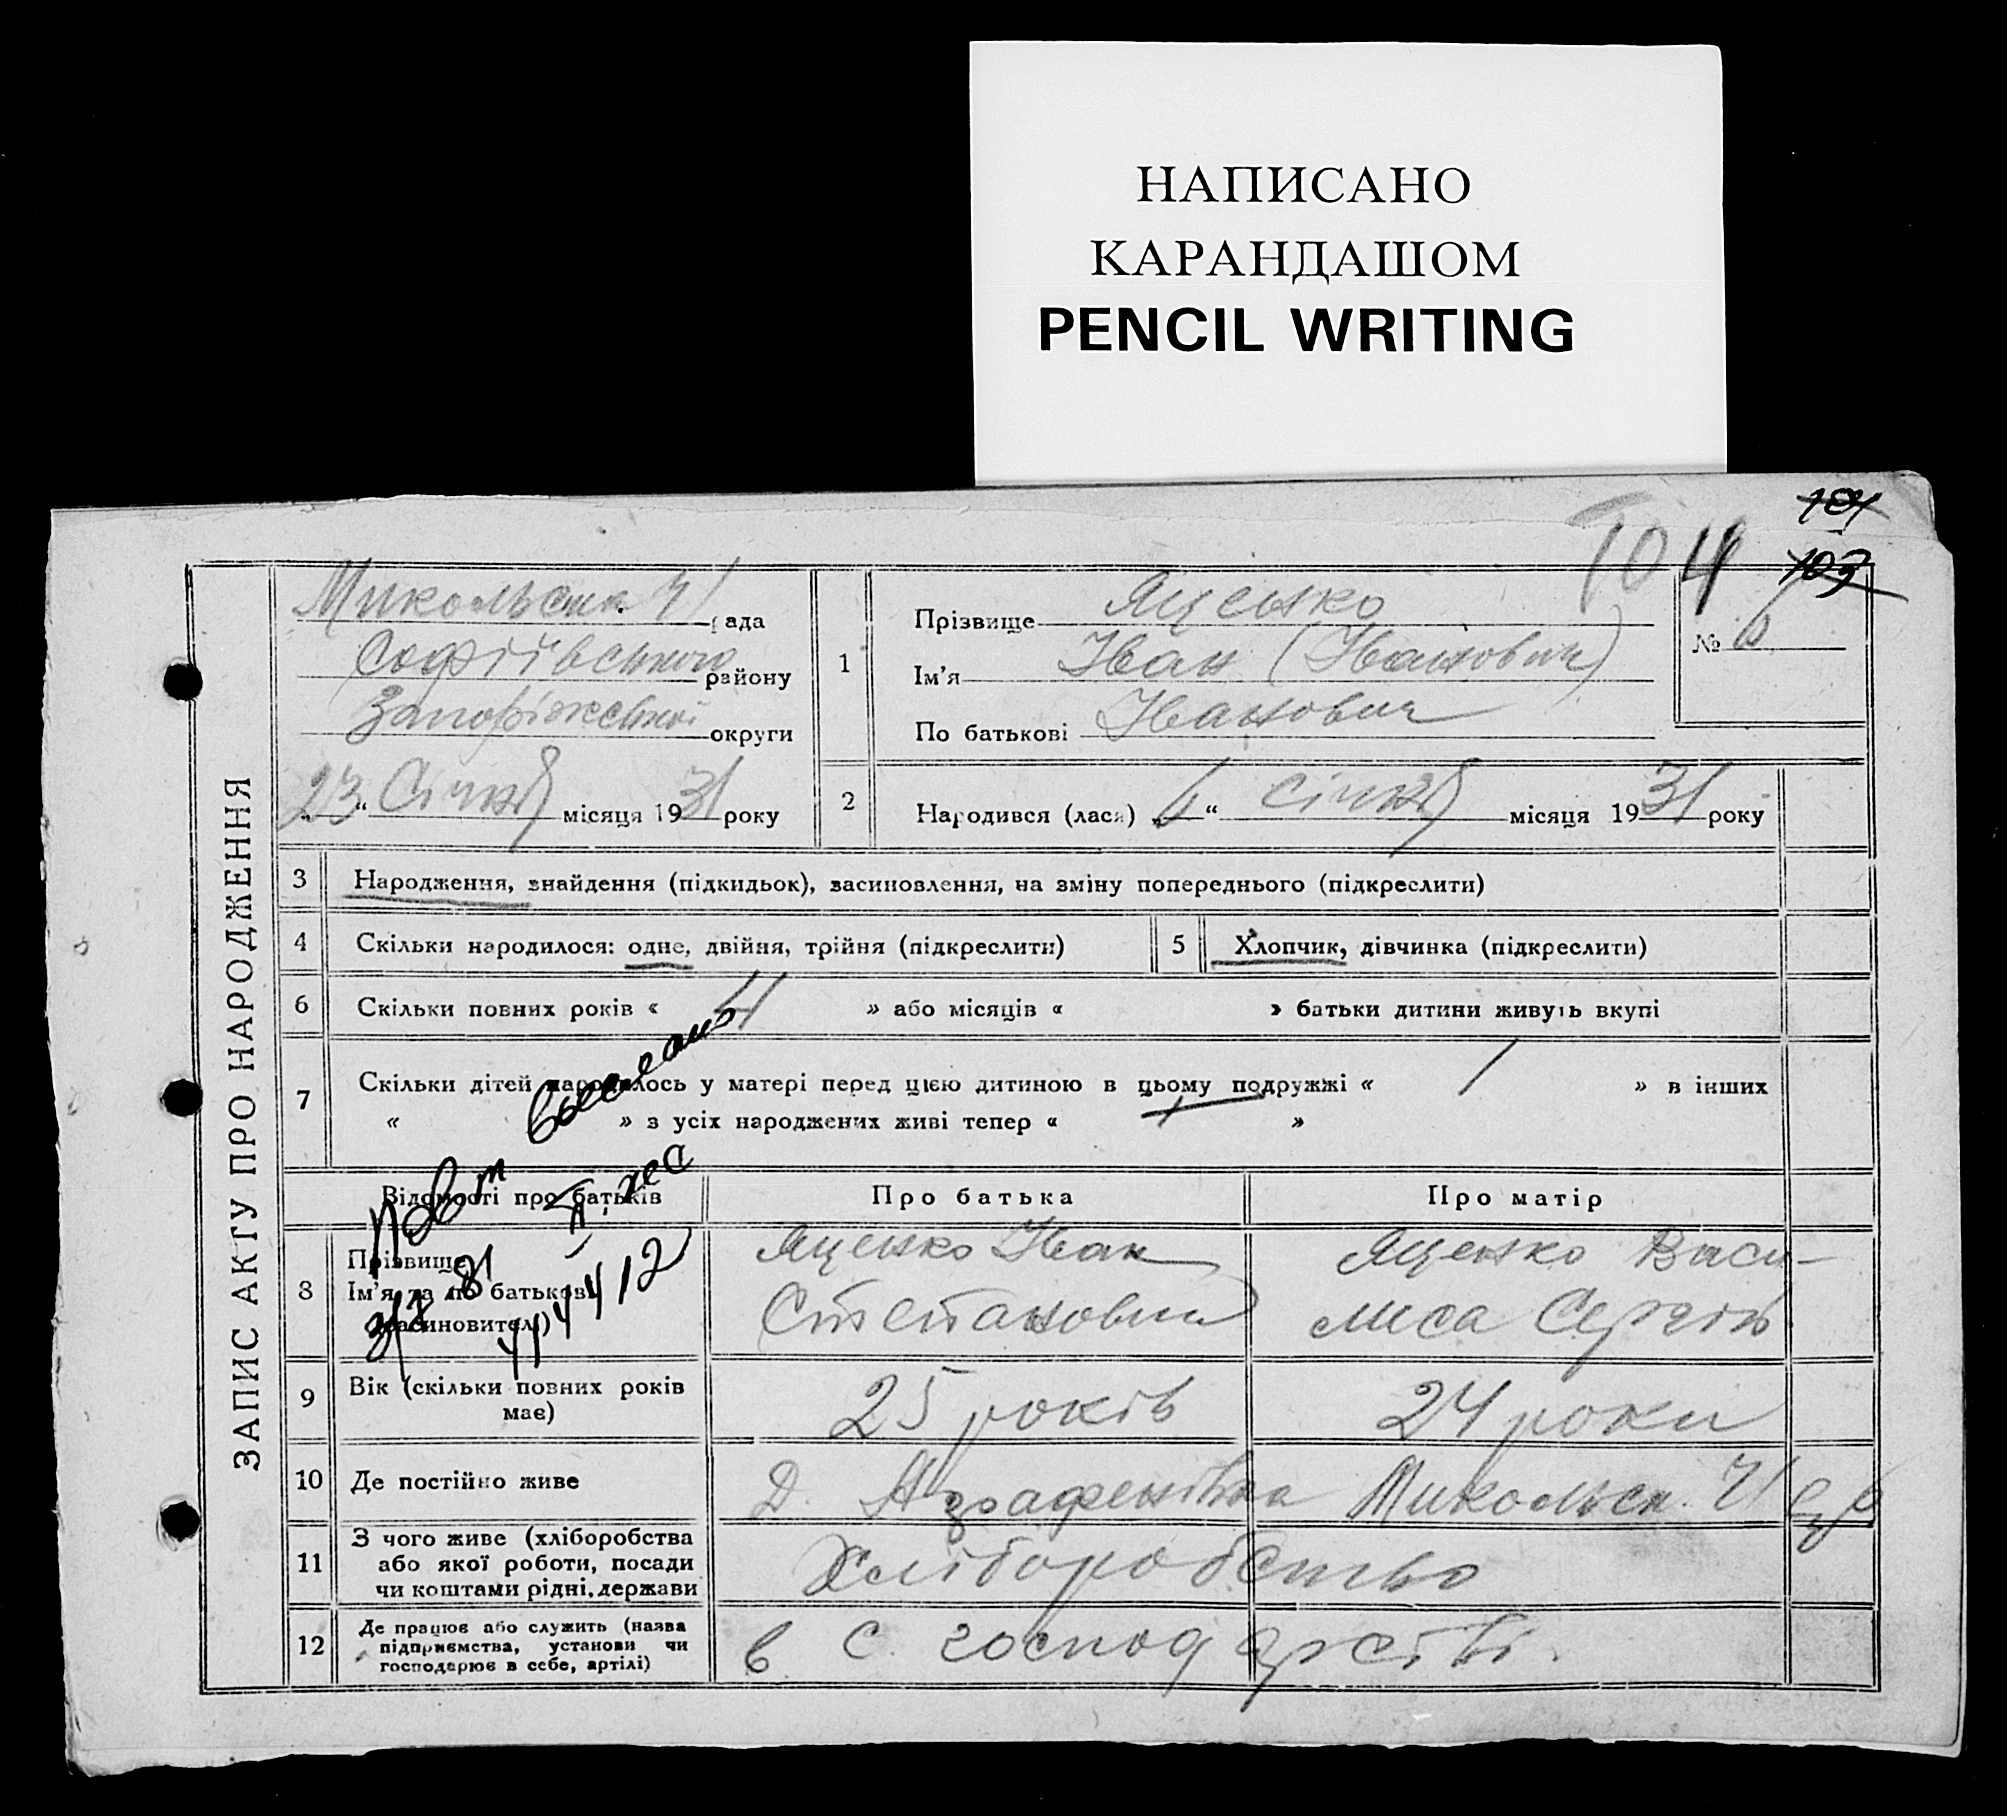 НАПИСАНО
КАРАНДАШОМ
PENCIL WRITING
104
103
104
ЗАПИС АКТУ ПРО НАРОДЖЕННЯ
Микольська ЧІ рада
Софіївського району
Запоріжської округи
23 “ Січня місяця 1931 року
1
Прізвище Яценко
Ім’я Іван (Іванович)
По батькові Іванович
№ 6
2
Народився (лася) „6“ січня місяця 1931 року
3 Народження, знайдення (підкидьок), засиновлення, на зміну попереднього (підкреслити)
4 Скільки народилося: одне, двійня, трійня (підкреслити)
5 Хлопчик, дівчинка (підкреслити)
6 Скільки повних років « 4 » або місяців « » батьки дитини живуть вкупі
7 Скільки дітей народилось у матері перед цією дитиною в цьому подружжі « 1 » в інших
« » з усіх народжених живі тепер « »
Повт выслано
Відомості про батьків Про батька Про матір
8 Прізвище,
Ім’я та по батькові
(засиновител)
Яценко Іван
Степанович
Яценко Васи-
лиса Сергіїв
9 Вік (скільки повних років
має)
25 років
24 роки
10 Де постійно живе
Д. Аграфенівка Микольск. ЧІ
11 З чого живе (хліборобства
або якої роботи, посади
чи коштами рідні, держави
Хліборобство
12 Де працює або служить (назва
підприємства, установи чи
господарює в себе, артілі)
в с. господарстві.